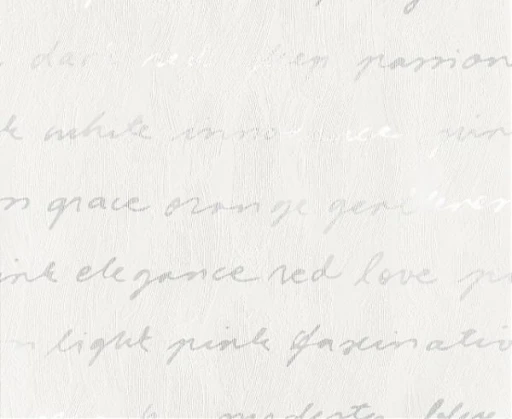 dark red deep passion
white innocence
grace orange gentleness
elegance red love
light pink fascinatio
modesty blue